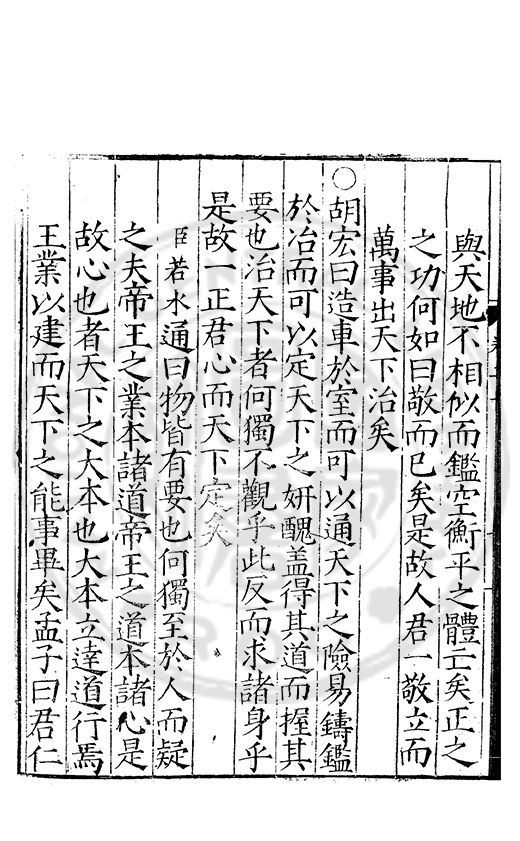 與天地不相似而鑑空衡平之體亡矣正之
之功何如曰敬而已矣是故人君一敬立而
萬事出天下治矣
○胡宏曰造車於室而可以通天下之險易鑄鑑
於冶而可以定天下之妍醜盖得其道而握其
要也治天下者何獨不觀乎此反而求諸身乎
是故一正君心而天下定矣
臣若水通曰物皆有要也何獨至於人而疑
之夫帝王之業本諸道帝王之道本諸心是
故心也者天下之大本也大本立達道行焉
王業以建而天下之能事畢矣孟子曰君仁